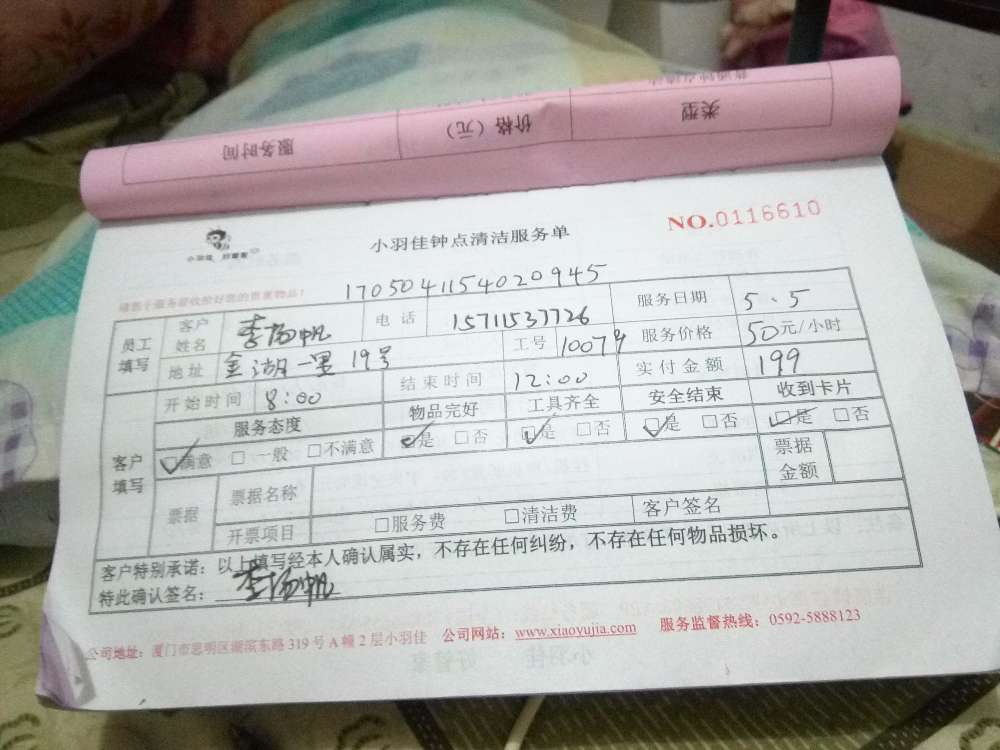 类型 价格（元） 服务时间
小羽佳 好管家
小羽佳钟点清洁服务单
NO.0116610
1705041154020945
员工填写 客户姓名 李扬帆 电话 15711537726 服务日期 5.5
地址 金湖一里19号 工号 10079 服务价格 50元/小时
开始时间 8:00 结束时间 12:00 实付金额 199
客户填写 服务态度 物品完好 工具齐全 安全结束 收到卡片
☑满意 □一般 □不满意 ☑是 □否 ☑是 □否 ☑是 □否 ☑是 □否
票据 票据名称 票据金额
开票项目 □服务费 □清洁费 客户签名
客户特别承诺：以上填写经本人确认属实，不存在任何纠纷，不存在任何物品损坏。
特此确认签名：李扬帆
公司地址：厦门市思明区湖滨东路319号A幢2层小羽佳 公司网站：www.xiaoyujia.com 服务监督热线：0592-5888123